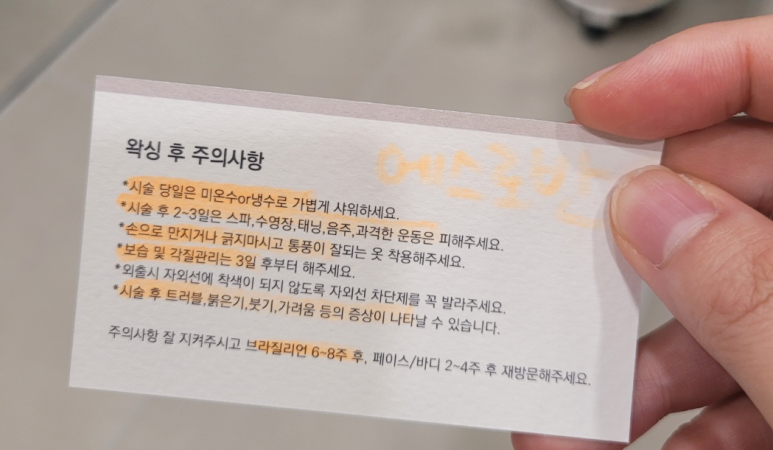 에스로반
왁싱 후 주의사항
*시술 당일은 미온수or냉수로 가볍게 샤워하세요.
*시술 후 2~3일은 스파,수영장,태닝,음주,과격한 운동은 피해주세요.
*손으로 만지거나 긁지마시고 통풍이 잘되는 옷 착용해주세요.
*보습 및 각질관리는 3일 후부터 해주세요.
*외출시 자외선에 착색이 되지 않도록 자외선 차단제를 꼭 발라주세요.
*시술 후 트러블,붉은기,붓기,가려움 등의 증상이 나타날 수 있습니다.
주의사항 잘 지켜주시고 브라질리언 6~8주 후, 페이스/바디 2~4주 후 재방문해주세요.